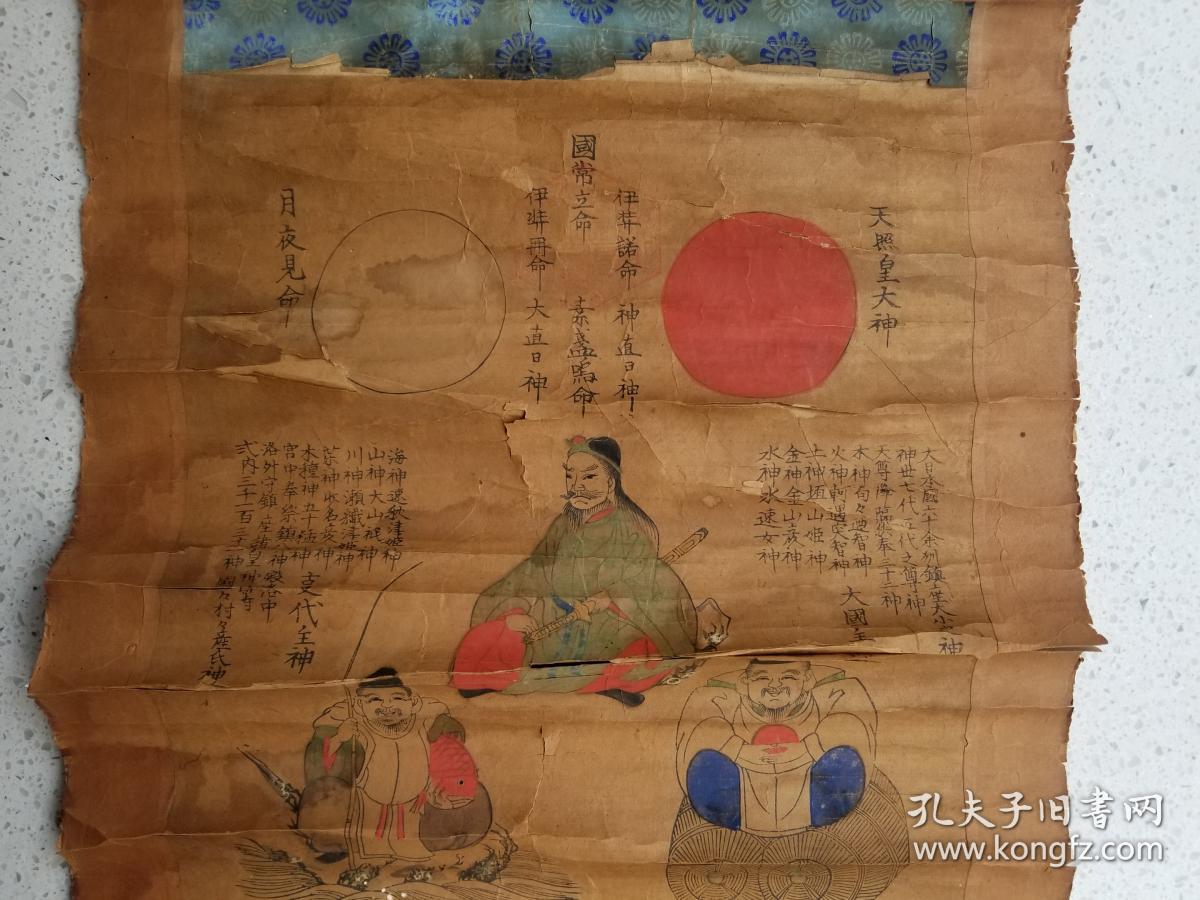 天照皇大神
伊弉諾命 神直日神
國常立命 素盞嗚命
伊弉冊命 大直日神
月夜見命
大日本國六十余州鎮座大小神
神世七代五代之尊神
天尊降臨供奉三十二神
木神句々廼智神
火神軻遇突智神
土神埴山姫神
金神金山彦神
水神水速女神
大國主
海神速秋津姫神
山神大山祇神
川神瀬織津姫神
木種神五十猛神
宮中奉祭鎮神
洛外守鎮座諸皇神等
式内三千一百三十二神
國々村々產氏神
支代主神
孔夫子旧書网
www.kongfz.com